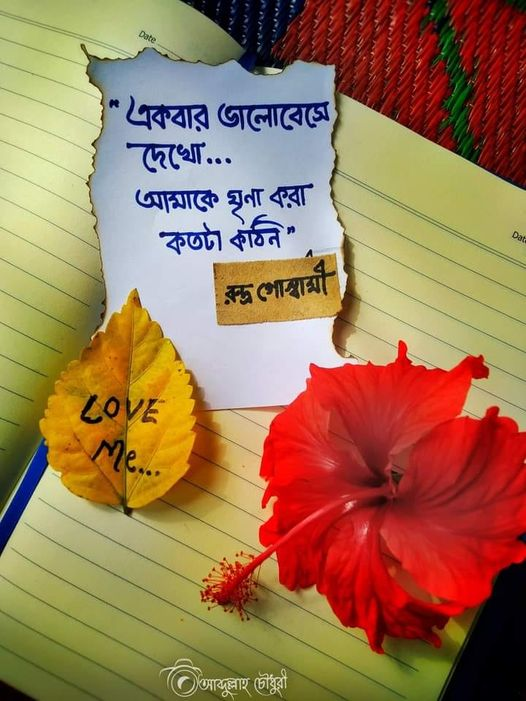 Date
"একবার ভালোবেসে
দেখো...
আমাকে ঘৃনা করা
কতটা কঠিন"
রুদ্র গোস্বামী
LOVE
Me...
Dat
আব্দুল্লাহ চৌধুরী